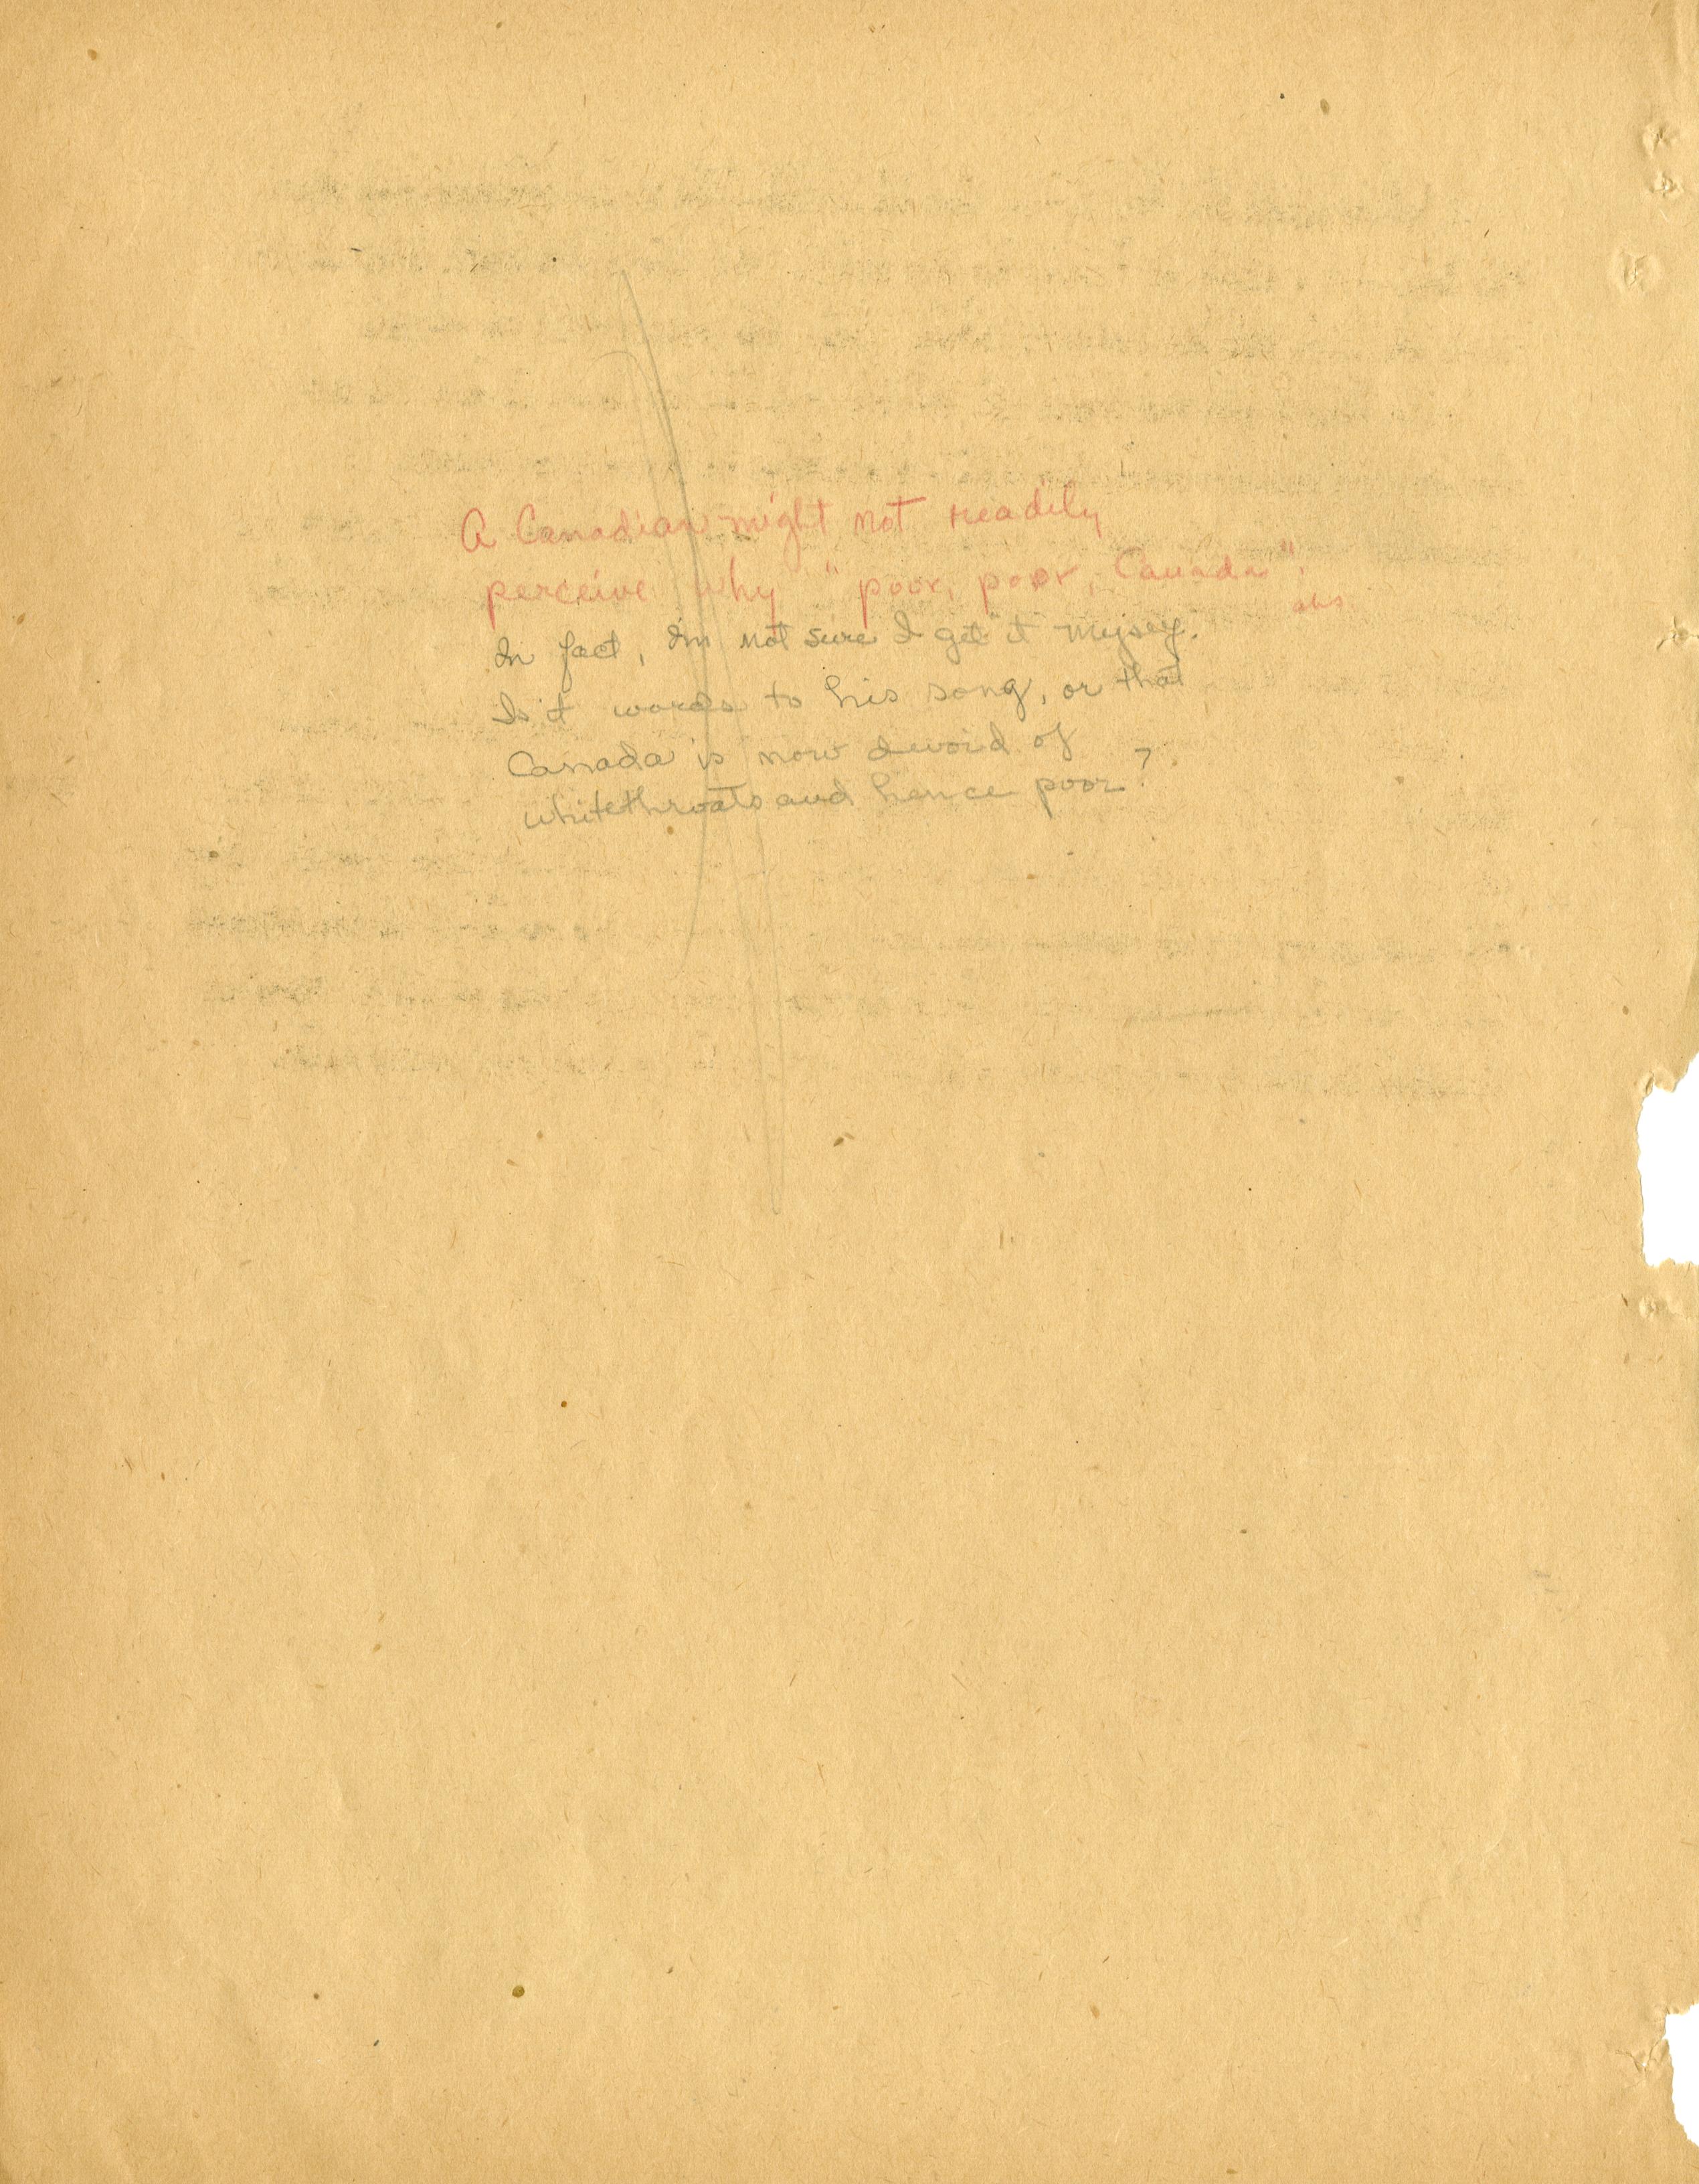 A Canadian might not readily
perceive why "poor, poor, Canada".
ahs
In fact, I'm not sure I get it myself.
Is it words to his song, or that
Canada is now devoid of
whitethroats and hence poor?